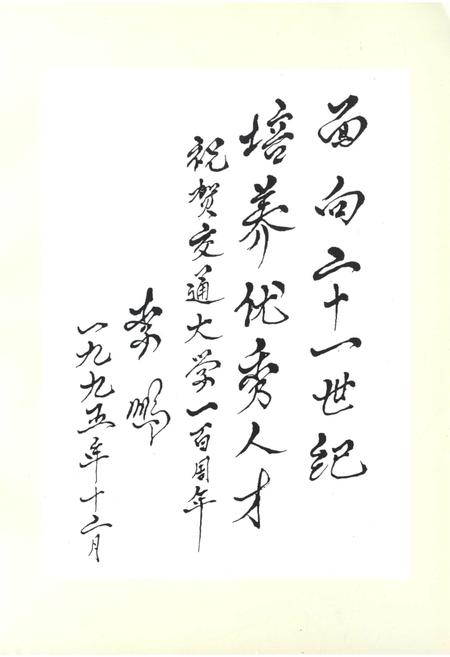 面向二十一世纪
培养优秀人才
祝贺交通大学一百周年
李鹏
一九九五年十二月